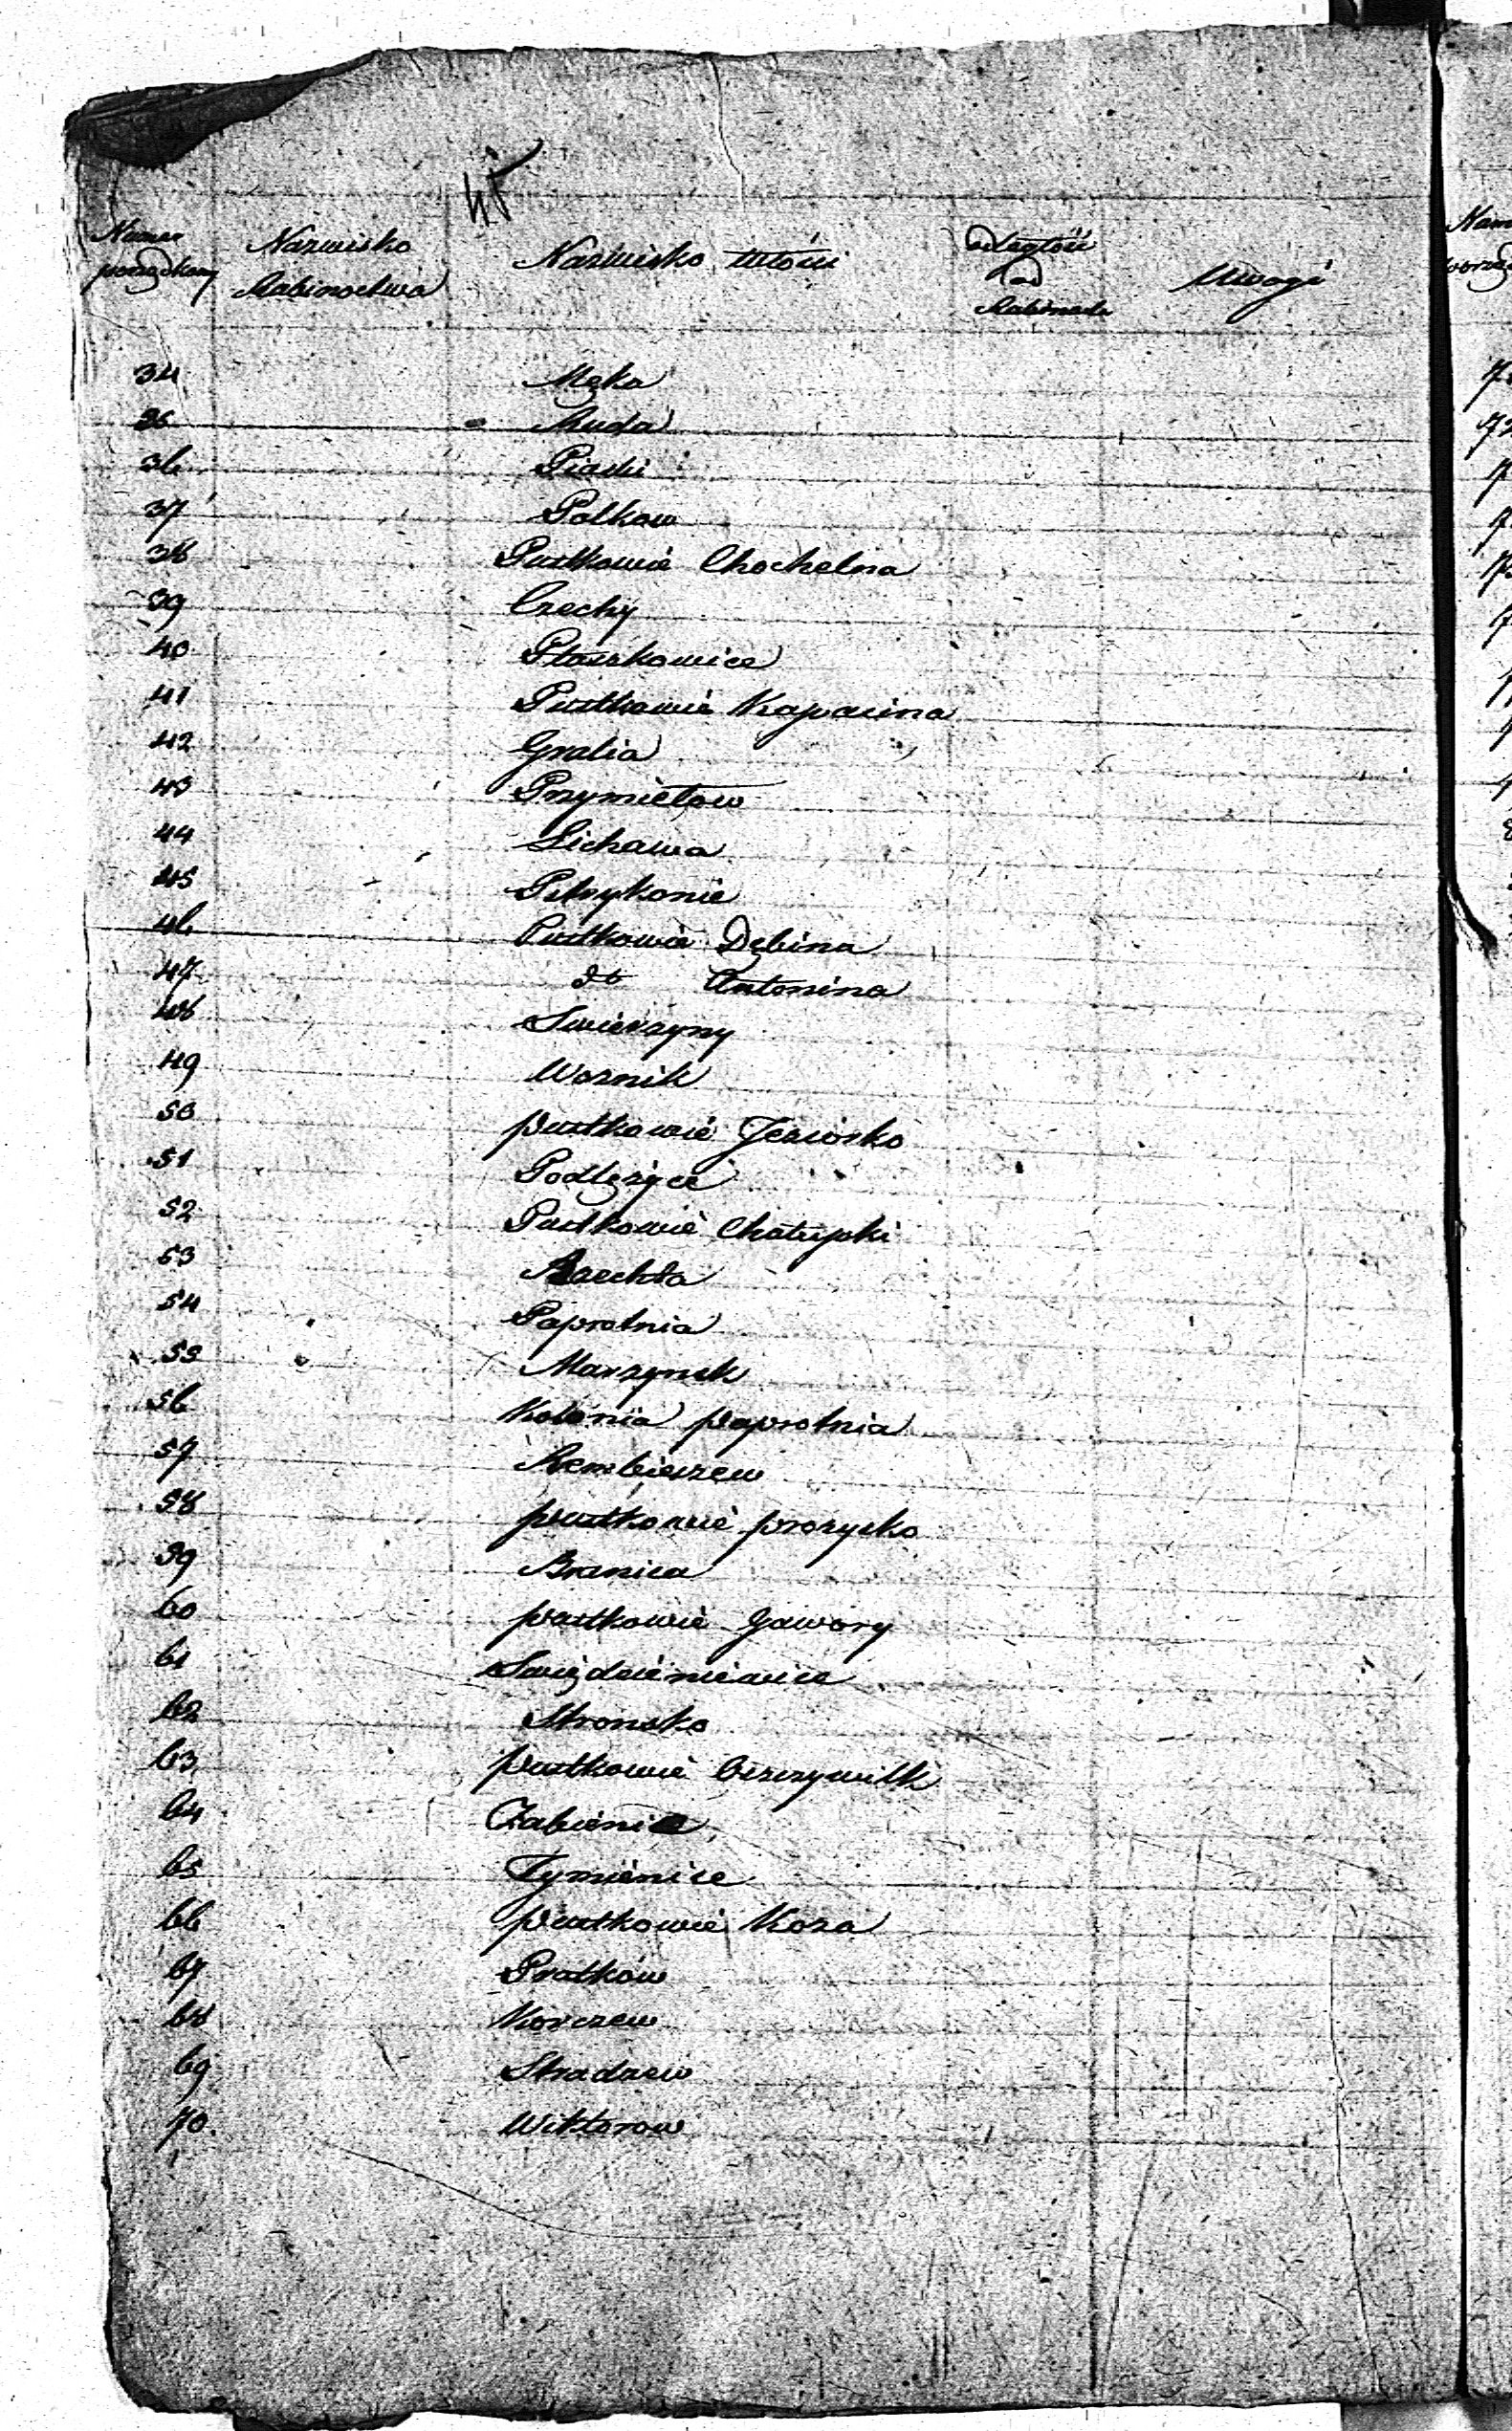 45
Numer porządkowy Nazwisko Rabinostwa Nazwisko Włości odległość od Rabinatu Uwagi
34 Męka
35 Ruda
36 Piaski
37 Polkow
38 Pustkowie Chochelna
39 Czechy
40 Ptaszkowice
41 Pustkowie Kapacina
42 Grabia
43 Przymiełow
44 Lichawa
45 Petrykonie
46 Pustkowie Dębina
47 do Antonina
48 Swierzyny
49 Woznik
50 pustkowie Jeziorko
51 Podłężyce
52 Pustkowie Chałupki
53 Rzechta
54 Paprotnia
55 Marzynek
56 Kolonia paprotnia
57 Rembieszew
58 pustkowie prozysko
59 Branica
60 pustkowie Gawory
61 Swiędzieniewice
62 Stronsko
63 pustkowie bezczywilk
64 Zabienie
65 Tymienice
66 pustkowie Koza
67 Pratków
68 Korczew
69 Stradzew
70. Wiktorow